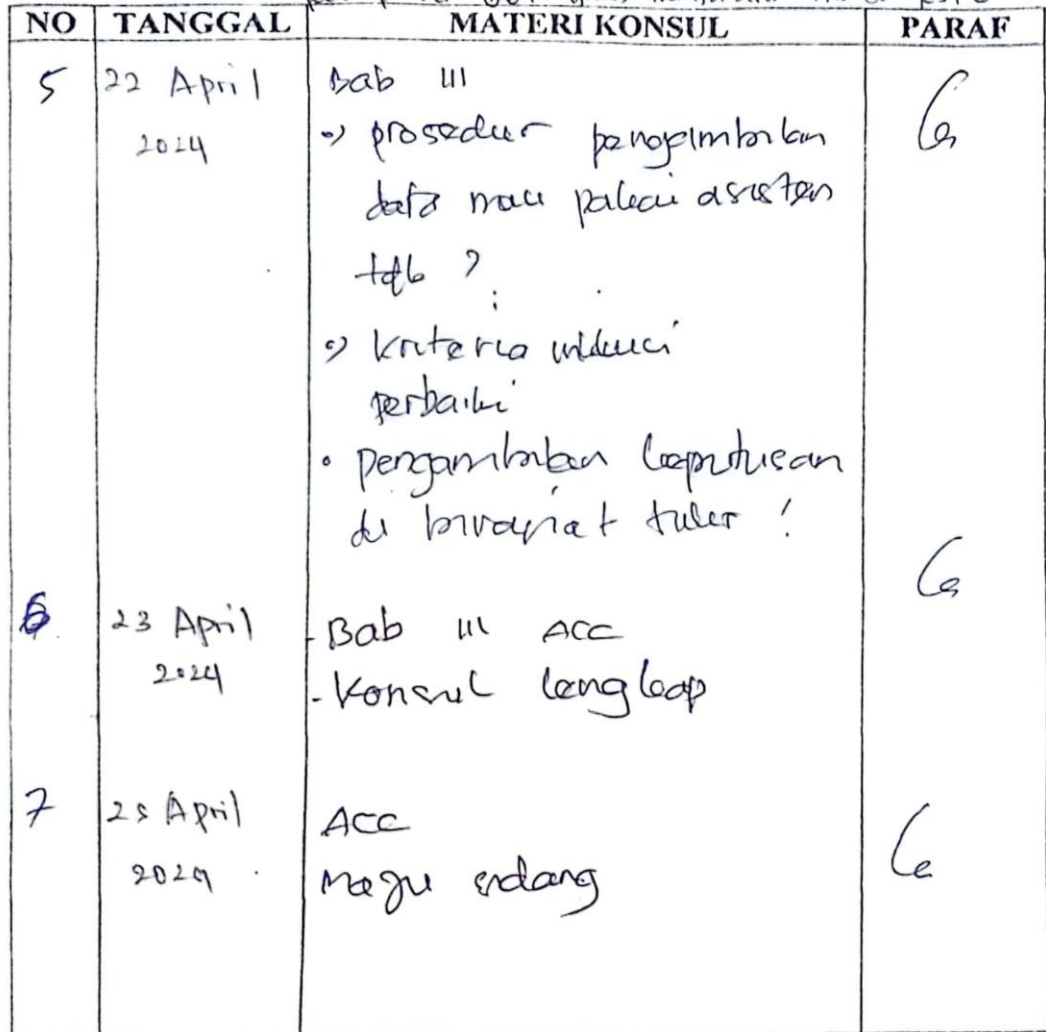 NO TANGGAL MATERI KONSUL PARAF
5 22 April Bab III
2024 prosedur pengambilan
data mau pakai asisten
tdk ?
kriteria inklusi
perbaiki
• pengambilan keputusan
di bivariat tulis !
6. 23 April - Bab III ACC
2024 - Konsul lengkap
7 25 April ACC
2024 Maju sidang